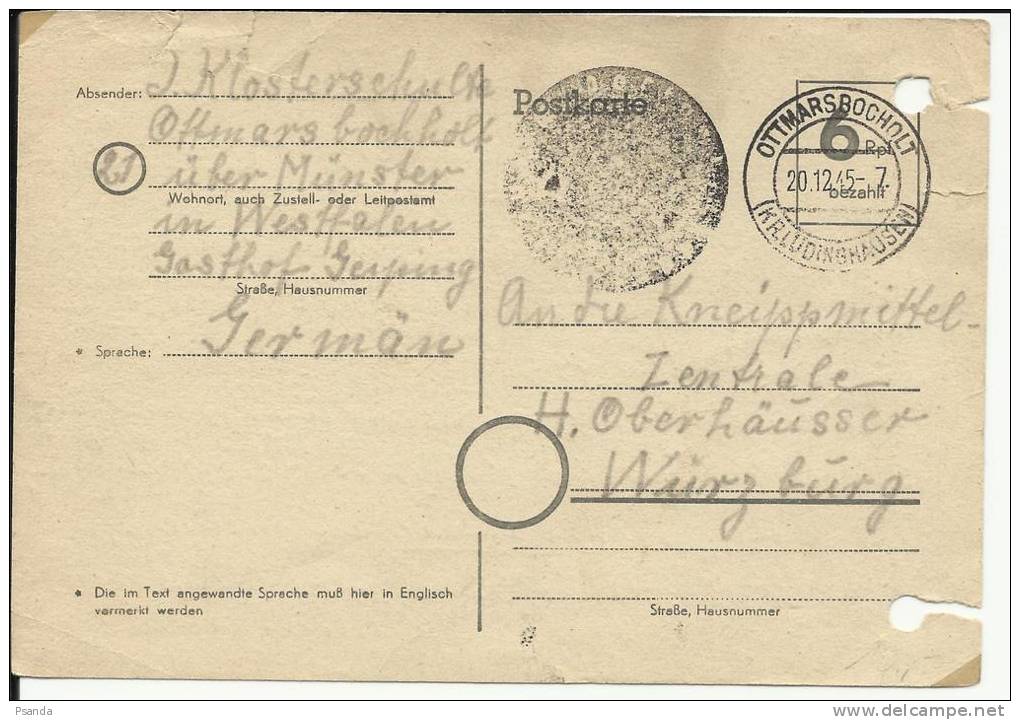 Absender: J. Klosterschulte
Ottmarsbochholt
21 über Münster
Wohnort, auch Zustell- oder Leitpostamt
in Westfalen
Gasthof Geiping
Straße, Hausnummer
* Sprache: Germän
* Die im Text angewandte Sprache muß hier in Englisch
vermerkt werden
Postkarte
6 Rpf
bezahlt
OTTMARSBOCHOLT
20.12.45-7
(KR.LÜDINGHAUSEN)
An die Kneippmittel-
Zentrale
H. Oberhäusser
Würzburg
Straße, Hausnummer
Psanda
www.delcampe.net